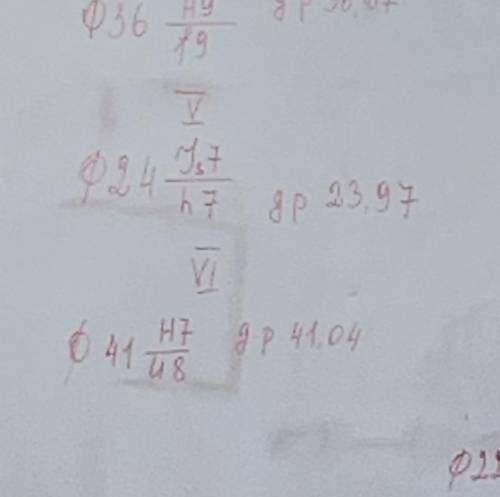 Ф36 H9/f9
V
Ф24 Js7/h7 gр 23,97
VI
Ф 41 H7/u8 gр 41,04
Ф22